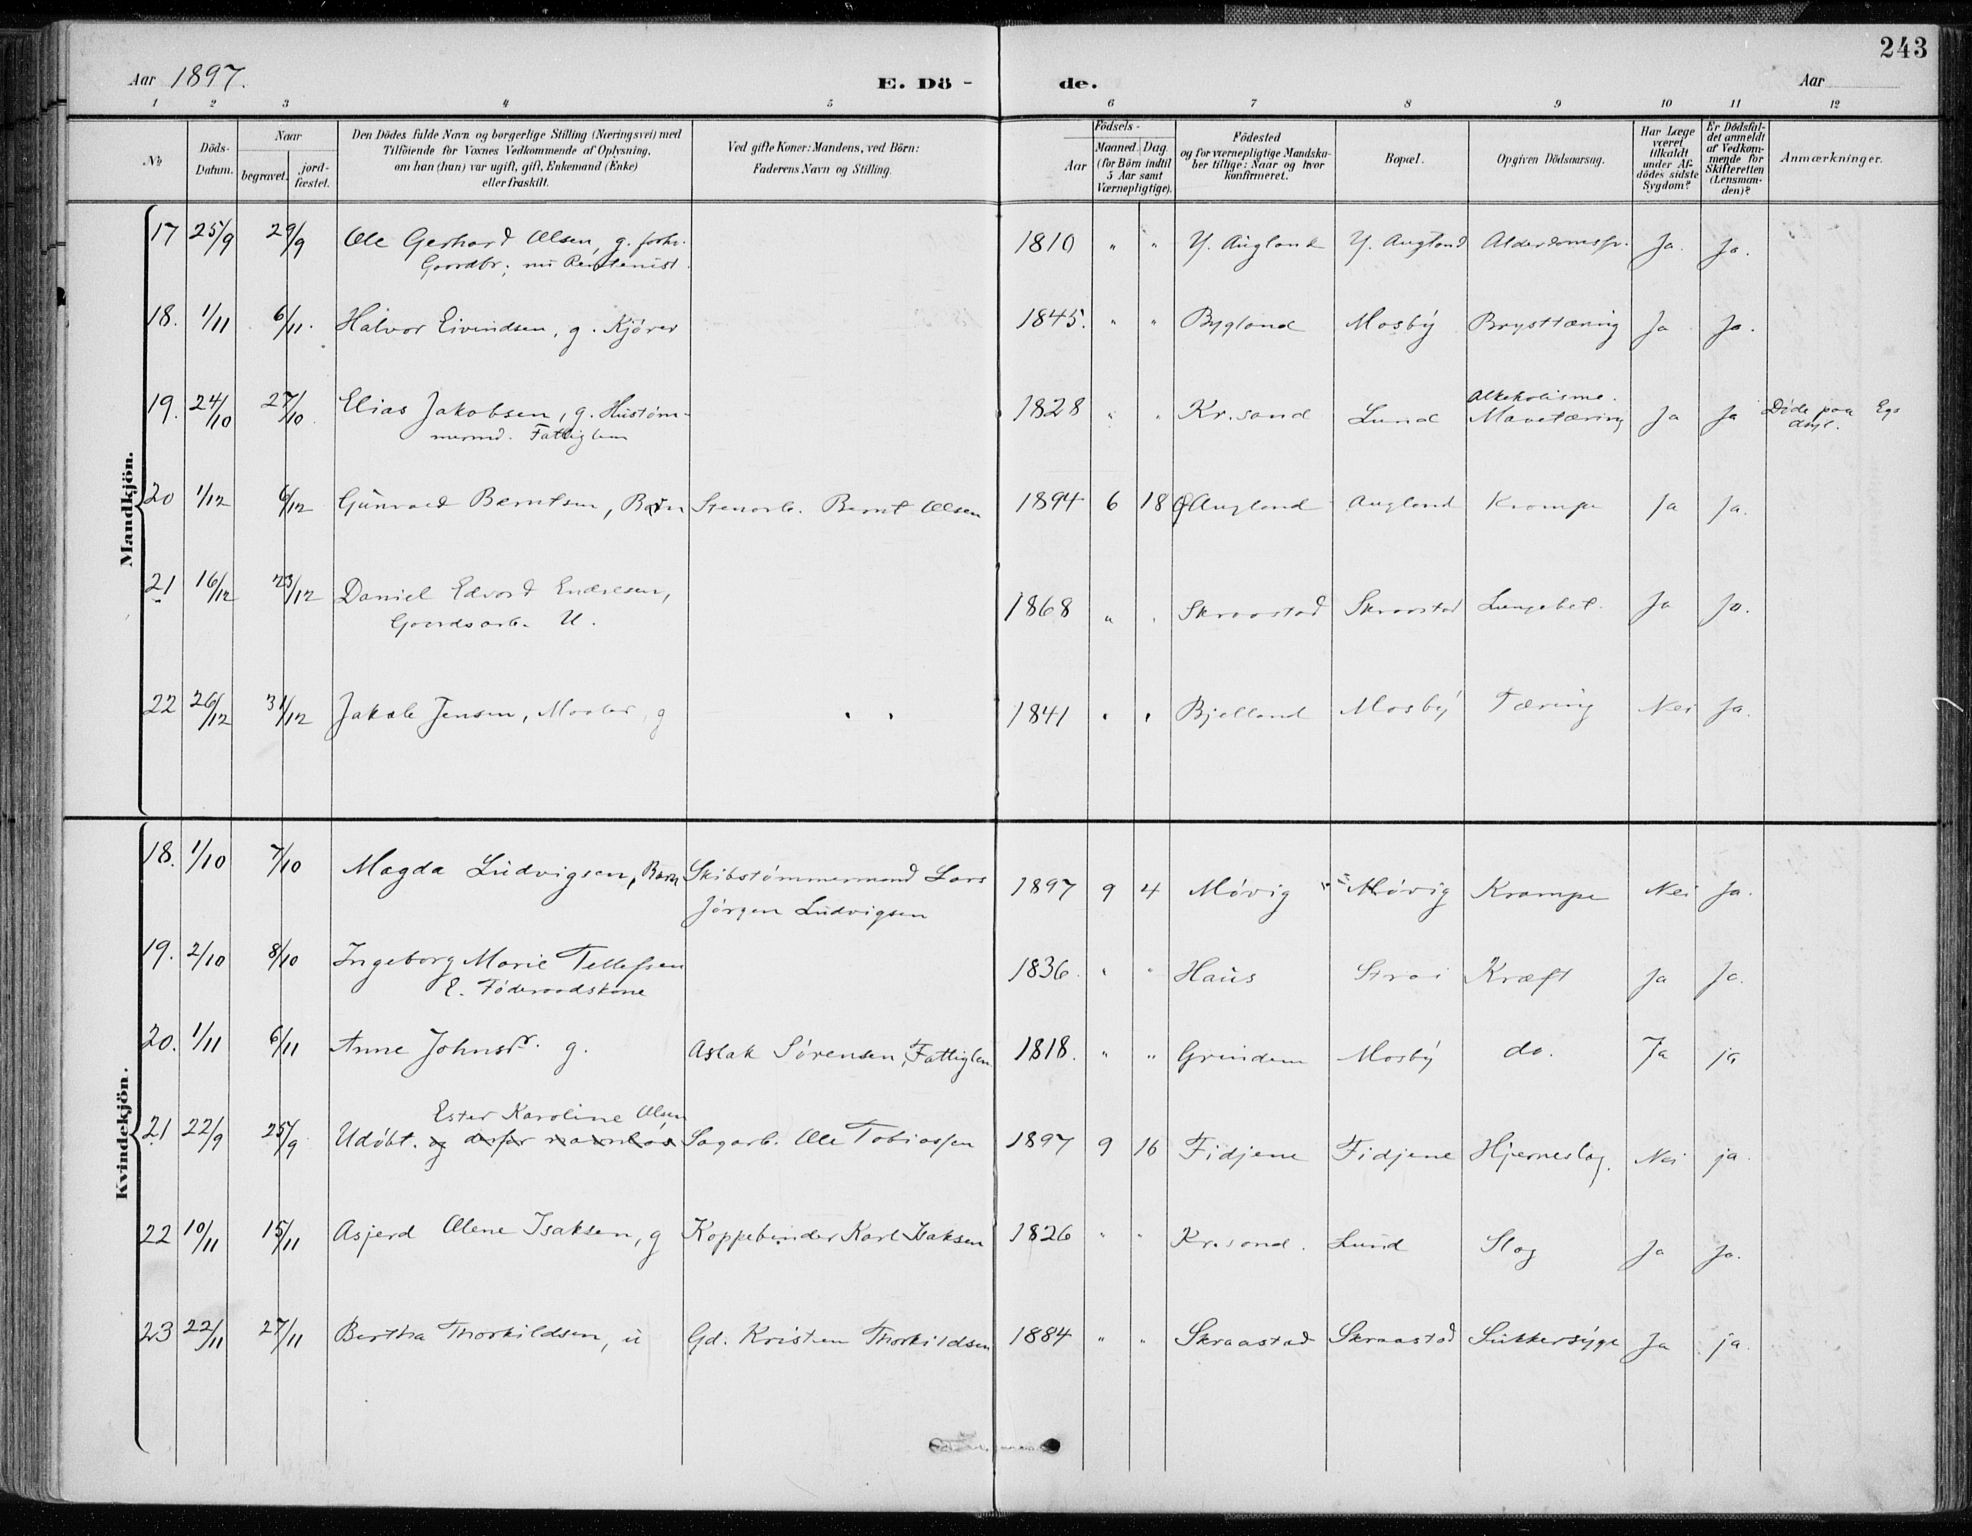 243
Aar 1897.
E. Dö - de.
Aar
1 2 3 4 5 6 7 8 9 10 11 12
No
Döds-Datum.
Naar
begravet.
jord-fæstet.
Den Dödes fulde Navn og borgerlige Stilling (Næringsvei) med
Tilföiende for Voxnes Vedkommende af Oplysning,
om han (hun) var ugift, gift, Enkemand (Enke)
eller fraskilt.
Ved gifte Koner: Mandens, ved Börn:
Faderens Navn og Stilling.
Födsels-
Aar
Maaned. Dag
(for Börn indtil
5 Aar samt
Værnepligtige).
Födested
og for værnepligtige Mandska-
ber tillige: Naar og hvor
konfirmeret.
Bopæl.
Opgiven Dödsaarsag.
Har Læge
været
tilkaldt
under Af-
dödes sidste
Sygdom?
Er Dödsfal-
det anmeldt
af Vedkom-
mende for
Skifteretten
(Lensman-
den)?
Anmærkninger.
Mandkjön.
17 25/9 29/9 Ole Gerhard Olsen, g. forhv. 1810 " " Y. Augland Y. Augland Alderdomssv. Ja. Ja.
Gaardbr; nu Rentenist.
18. 1/11 6/11. Halvor Eivindsen, g. Kjører 1845. " " Bygland Mosby Brysttæring Ja Ja.
19. 24/10 27/10. Elias Jakobsen, g. Hustøm- 1828 " " Kr.sand Lund Alkoholisme. Mavetæring Ja Ja Døde paa Egs
mermd. Fattiglem
asyl.
20 1/12 6/12 Gunvald Berntsen, Barn Stenarb. Bernt Olsen 1894 6 18 Ø Augland Augland Krampe Ja Ja.
21 16/12 23/12 Daniel Edvard Endresen, 1868 " " Skraastad Skraastad Lungebet. Ja Ja.
Gaardsarb. U.
22 26/12 31/12 Jakob Jensen, Maaler, g " " 1841 " " Bjelland Mosby Tæring Nei Ja.
Kvindekjön.
18. 1/10 7/10 Magda Ludvigsen, Barn Skibstømmermand Lars 1897 9 4 Møvig Møvig Krampe Nei Ja.
Jørgen Ludvigsen
19. 2/10 8/10 Ingeborg Marie Tellefsen 1836. " " Haus Strai Kræft Ja Ja.
E. Føderaadskone
20. 1/11 6/11 Anne Johnsdr. g. Aslak Sørensen, Fattiglem 1818. " " Grindem Mosby do. Ja ja
Ester Karoline Olsen
21 22/9 25/9 Udøbt. og derfor navnløs Sagarb. Ole Tobiassen 1897 9 16 Fidjene Fidjene Hjerneslag. Nei ja.
22 10/11 15/11 Asjerd Olene Isaksen, g Koppebinder Karl Isaksen 1826 " " Kr.sand. Lund Slag Ja Ja.
23 22/11 27/11 Bertha Thorkildsen, u Gd. Kristen Thorkildsen 1884 " " Skraastad Skraastad Sukkersyge Ja ja.